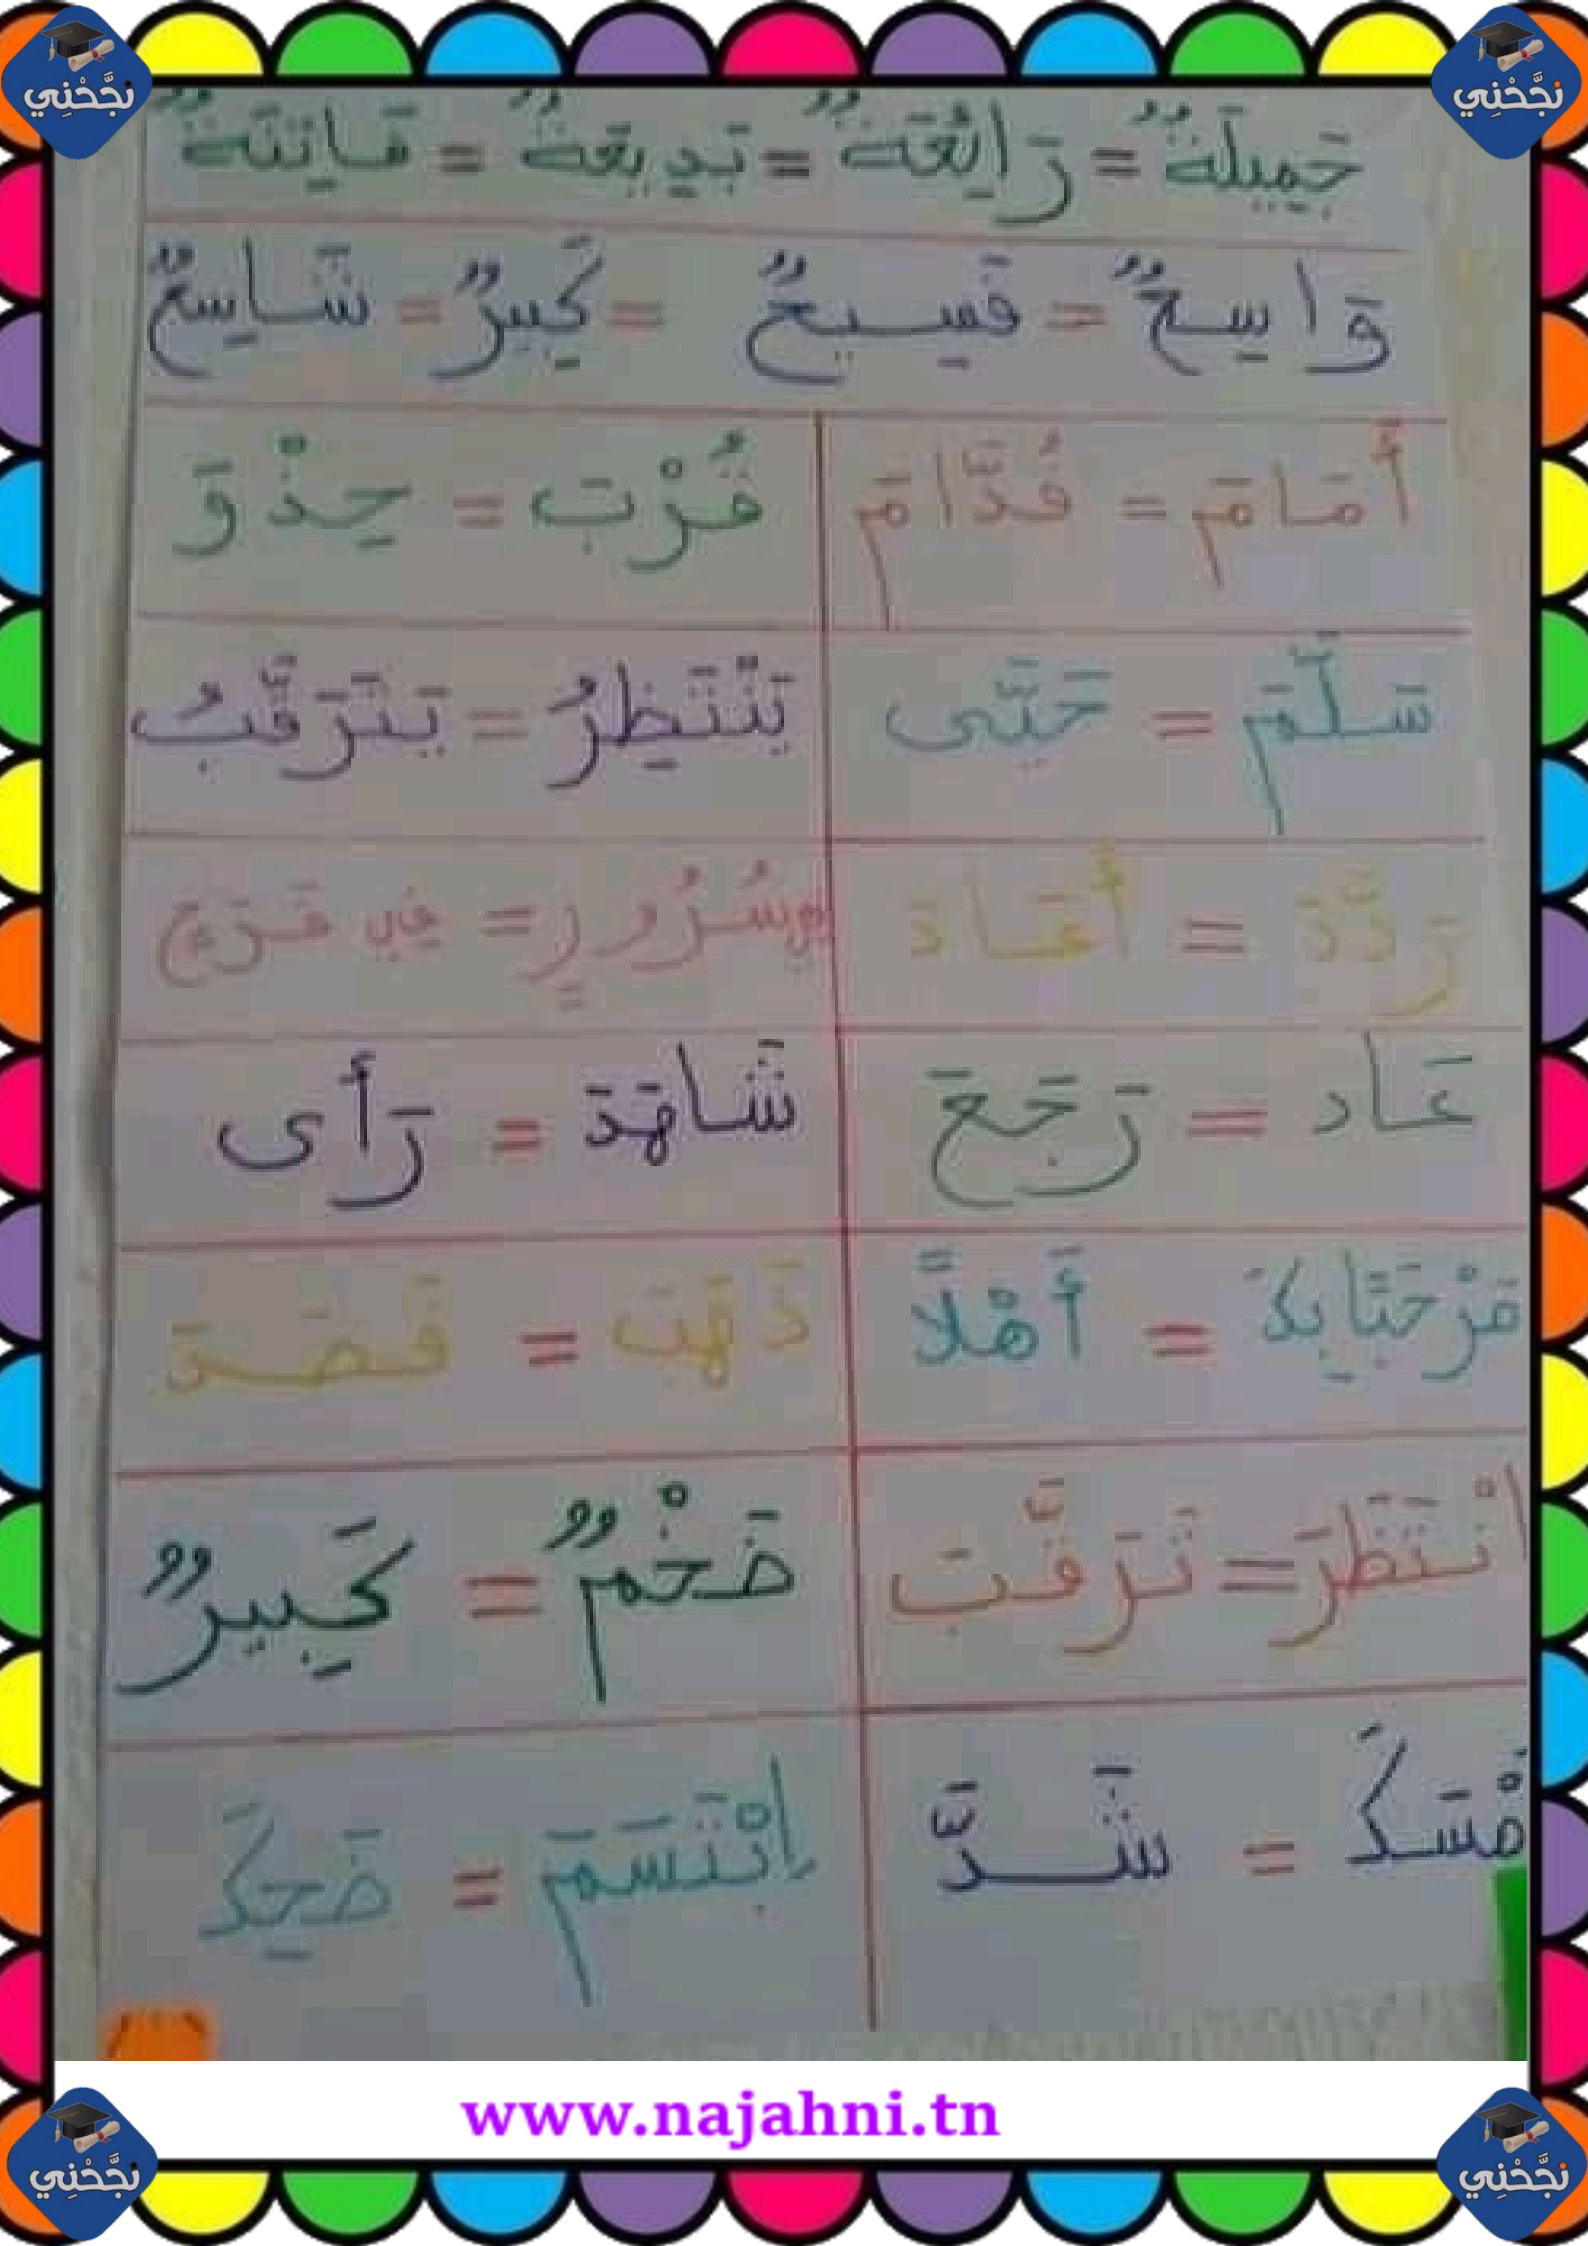 نجَّحْنِي
نجَّحْنِي
جَمِيلَةٌ = رَائِعَةٌ = بَدِيعَةٌ = فَاتِنَةٌ
وَاسِعٌ = فَسِيحٌ = كَبِيرٌ = شَاسِعٌ
أَمَامَ = قُدَّامَ
قُرْبَ = حِذْوَ
سَلَّمَ = حَيَّى
يَنْتَظِرُ = يَتَرَقَّبُ
رَدَّدَ = أَعَادَ
بِسُرُورٍ = فِي فَرَحٍ
عَاد = رَجَعَ
شَاهَدَ = رَأَى
مَرْحَبًا بِكَ = أَهْلًا
ذَهَبَ = قَصَدَ
انْتَظَرَ = تَرَقَّبَ
ضَخْمٌ = كَبِيرٌ
مْسَكَ = شَدَّ
اِبْتَسَمَ = ضَحِكَ
www.najahni.tn
نجَّحْنِي
نجَّحْنِي